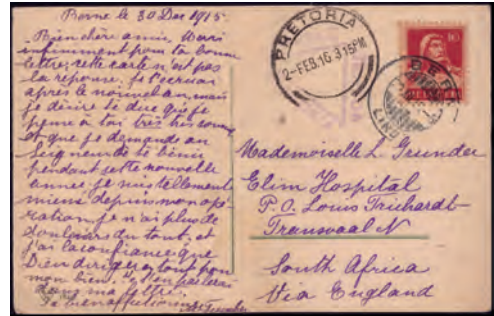 Berne le 30 Dec 1915
Bien chère amie, Merci
infiniment pour ta bonne
lettre, cette carte n'est pas
la reponse. Je t'ecrirai
après le nouvel an, mais
je désire te dire que je
pense à toi très très souvent
et que je demande au
Seigneur de te bénir
pendant cette nouvelle
année. Je suis tellement
mieux depuis mon opé-
ration, je n'ai plus de
douleurs du tout, et
j'ai la confiance que
Dieu dirigera tout pour
mon bien.
dans ma lettre.
PRETORIA
2-FEB.16 3.15PM
10
HELVETIA
BER
Mademoiselle L.
Elim Hospital
P.O. Louis Trichardt
Transvaal N
South Africa
Via England